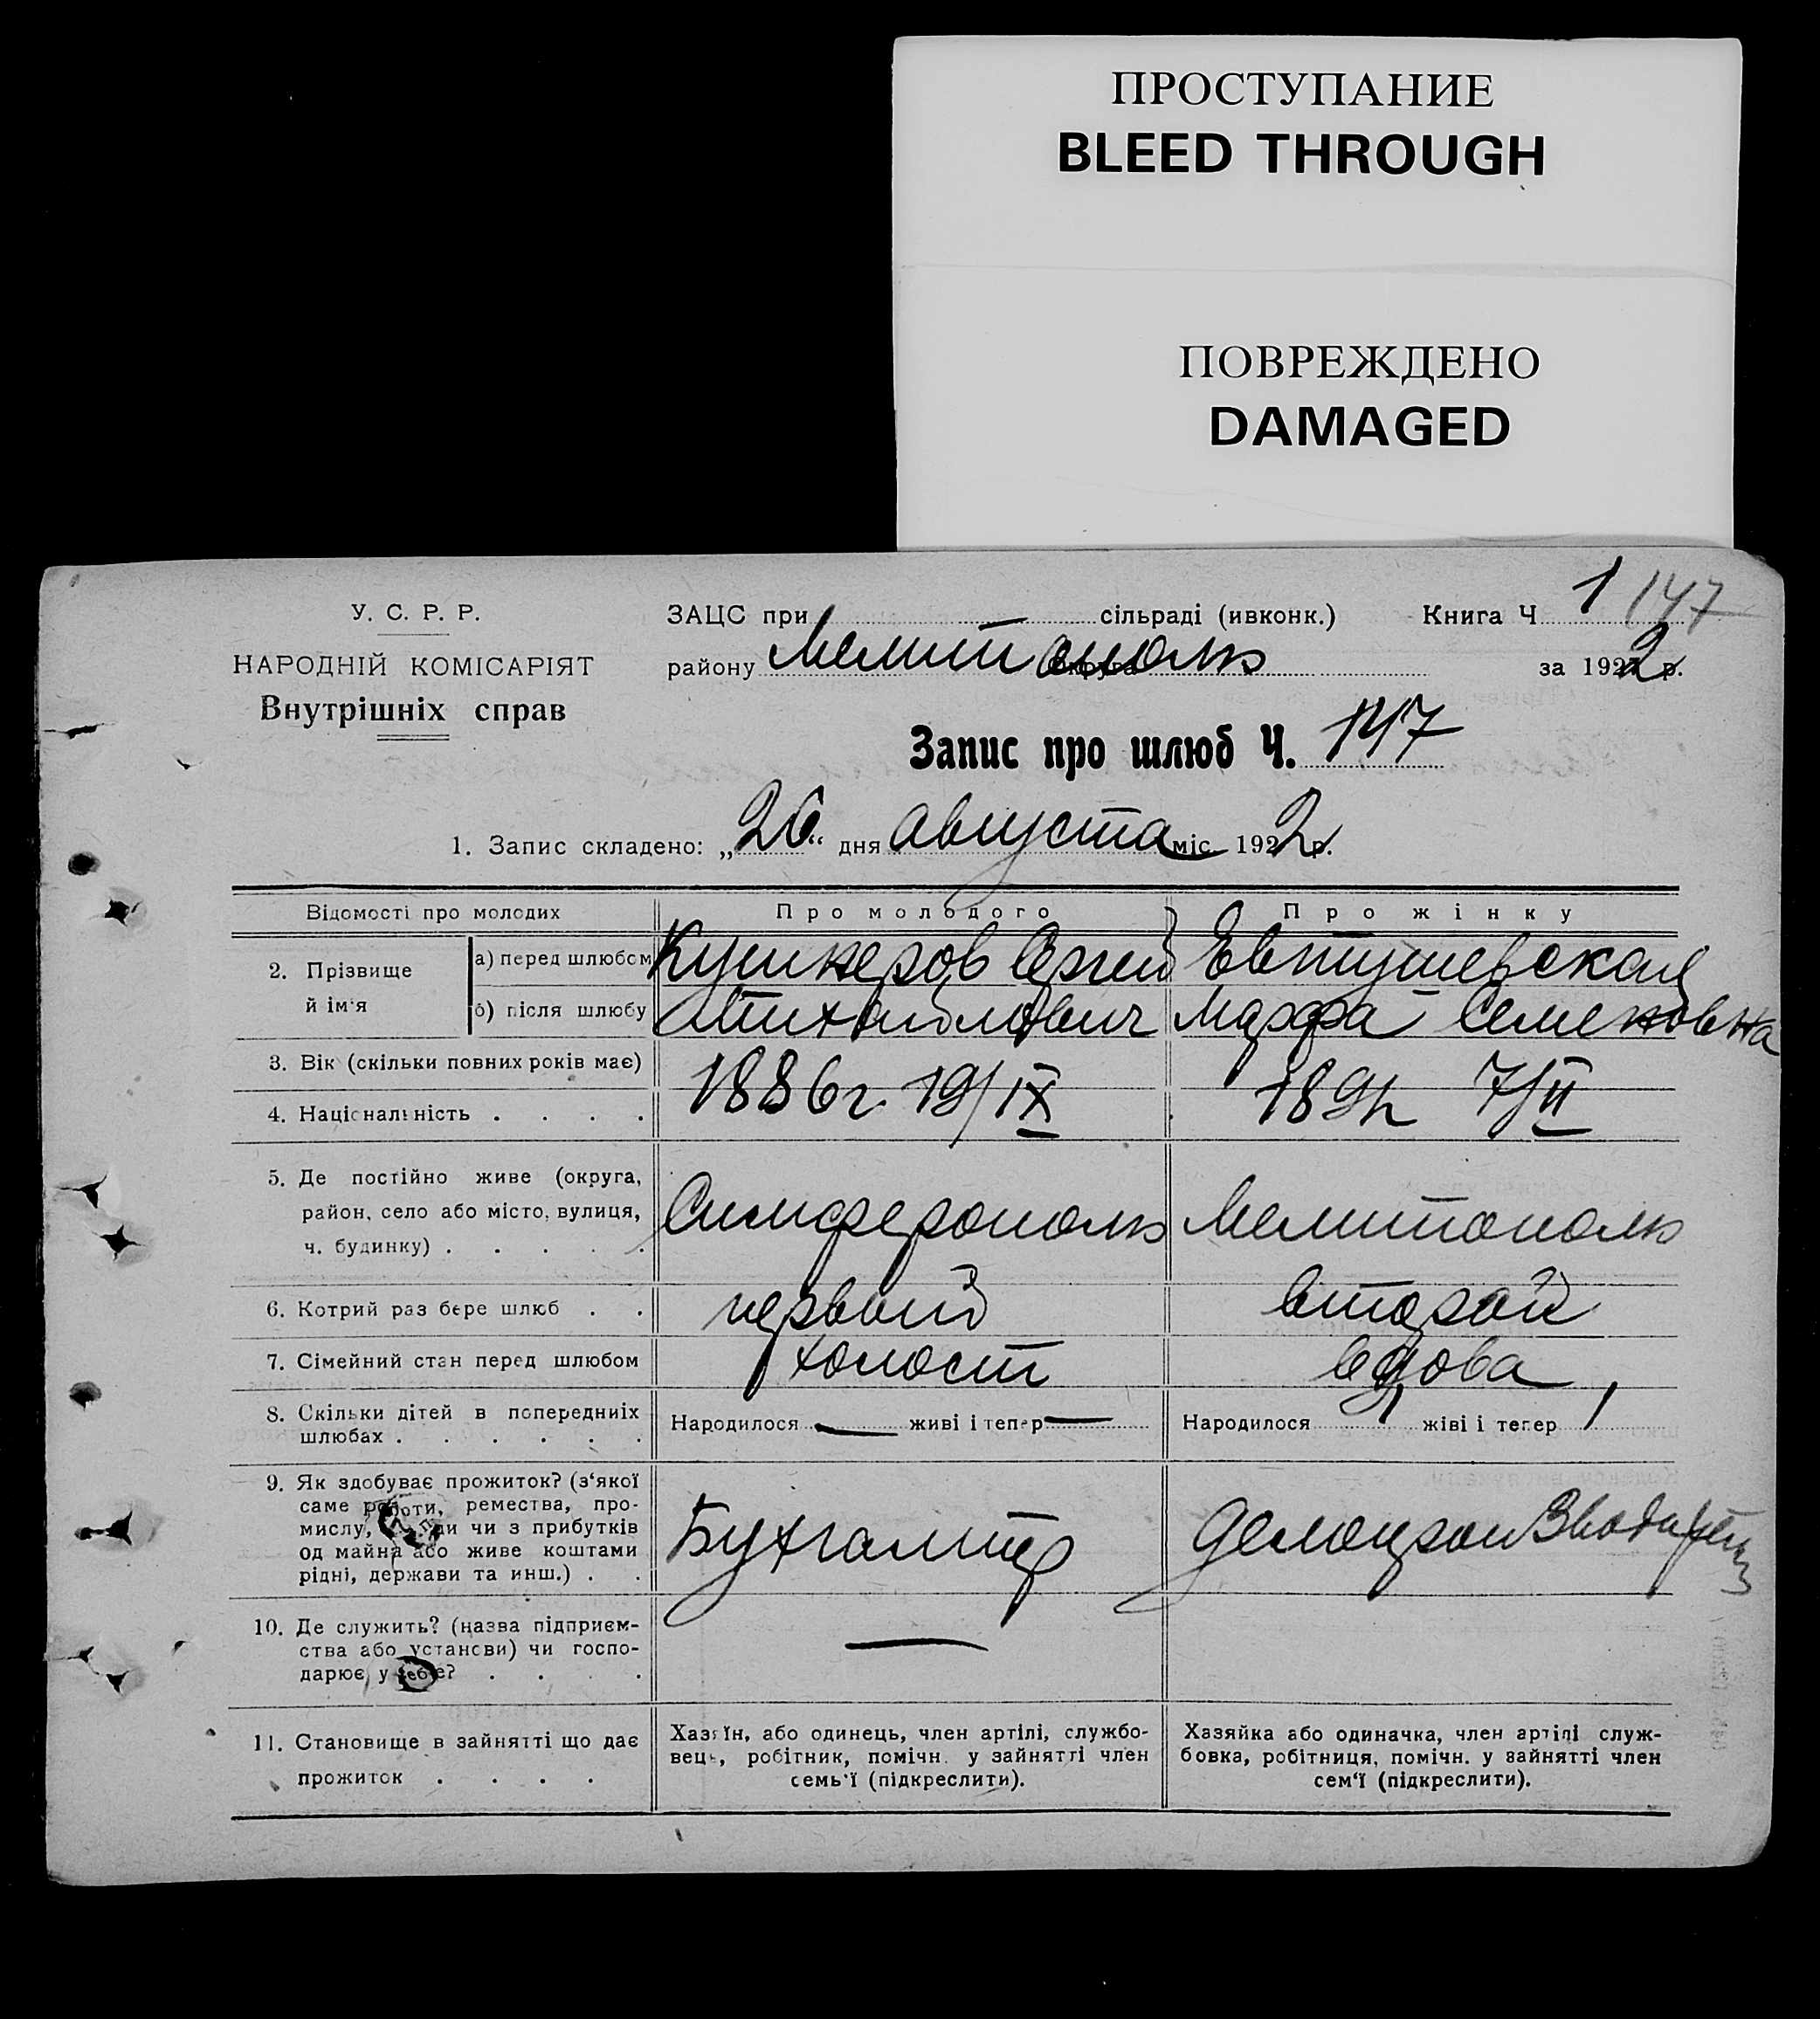 ПРОСТУПАНИЕ
BLEED THROUGH
ПОВРЕЖДЕНО
DAMAGED
У. С. Р. Р.
НАРОДНІЙ КОМІСАРІЯТ
Внутрішніх справ
ЗАЦС при сільраді (ивконк.) Книга Ч 1 147
району Мелитополь округа за 1922 р.
Запис про шлюб Ч. 147
1. Запис складено: „26“ дня августа міс. 1922 р.
Відомості про молодих Про молодого Про жінку
2. Прізвище й ім'я а) перед шлюбом Кушнеров Сергей Евтушевская
б) після шлюбу Михайлович Марфа Семеновна
3. Вік (скільки повних років має)
4. Національність . . . . 1886г. 19/IX 7/II
5. Де постійно живе (округа,
район, село або місто, вулиця, Симферополь Мелитополь
ч. будинку) . . . . .
6. Котрий раз бере шлюб . . первый второй
7. Сімейний стан перед шлюбом холост вдова
8. Скільки дітей в попередниіх Народилося — живі і тепер — Народилося 1 жіві і тепер 1
шлюбах . . . . . .
9. Як здобуває прожиток? (з'якої
саме роботи, ремества, про-
мислу, ди чи з прибутків Бухгалтер
од майна або живе коштами
рідні, держави та инш.) . .
10. Де служить? (назва підприєм-
ства або установи) чи госпо- —
дарює у себе? . . . .
11. Становище в зайнятті що дає
прожиток . . . .
Хазяїн, або одинець, член артілі, службо-
вець, робітник, помічн. у зайнятті член
семь'ї (підкреслити).
Хазяйка або одиначка, член артілі служ-
бовка, робітниця, помічн. у зайнятті член
сем'ї (підкреслити).